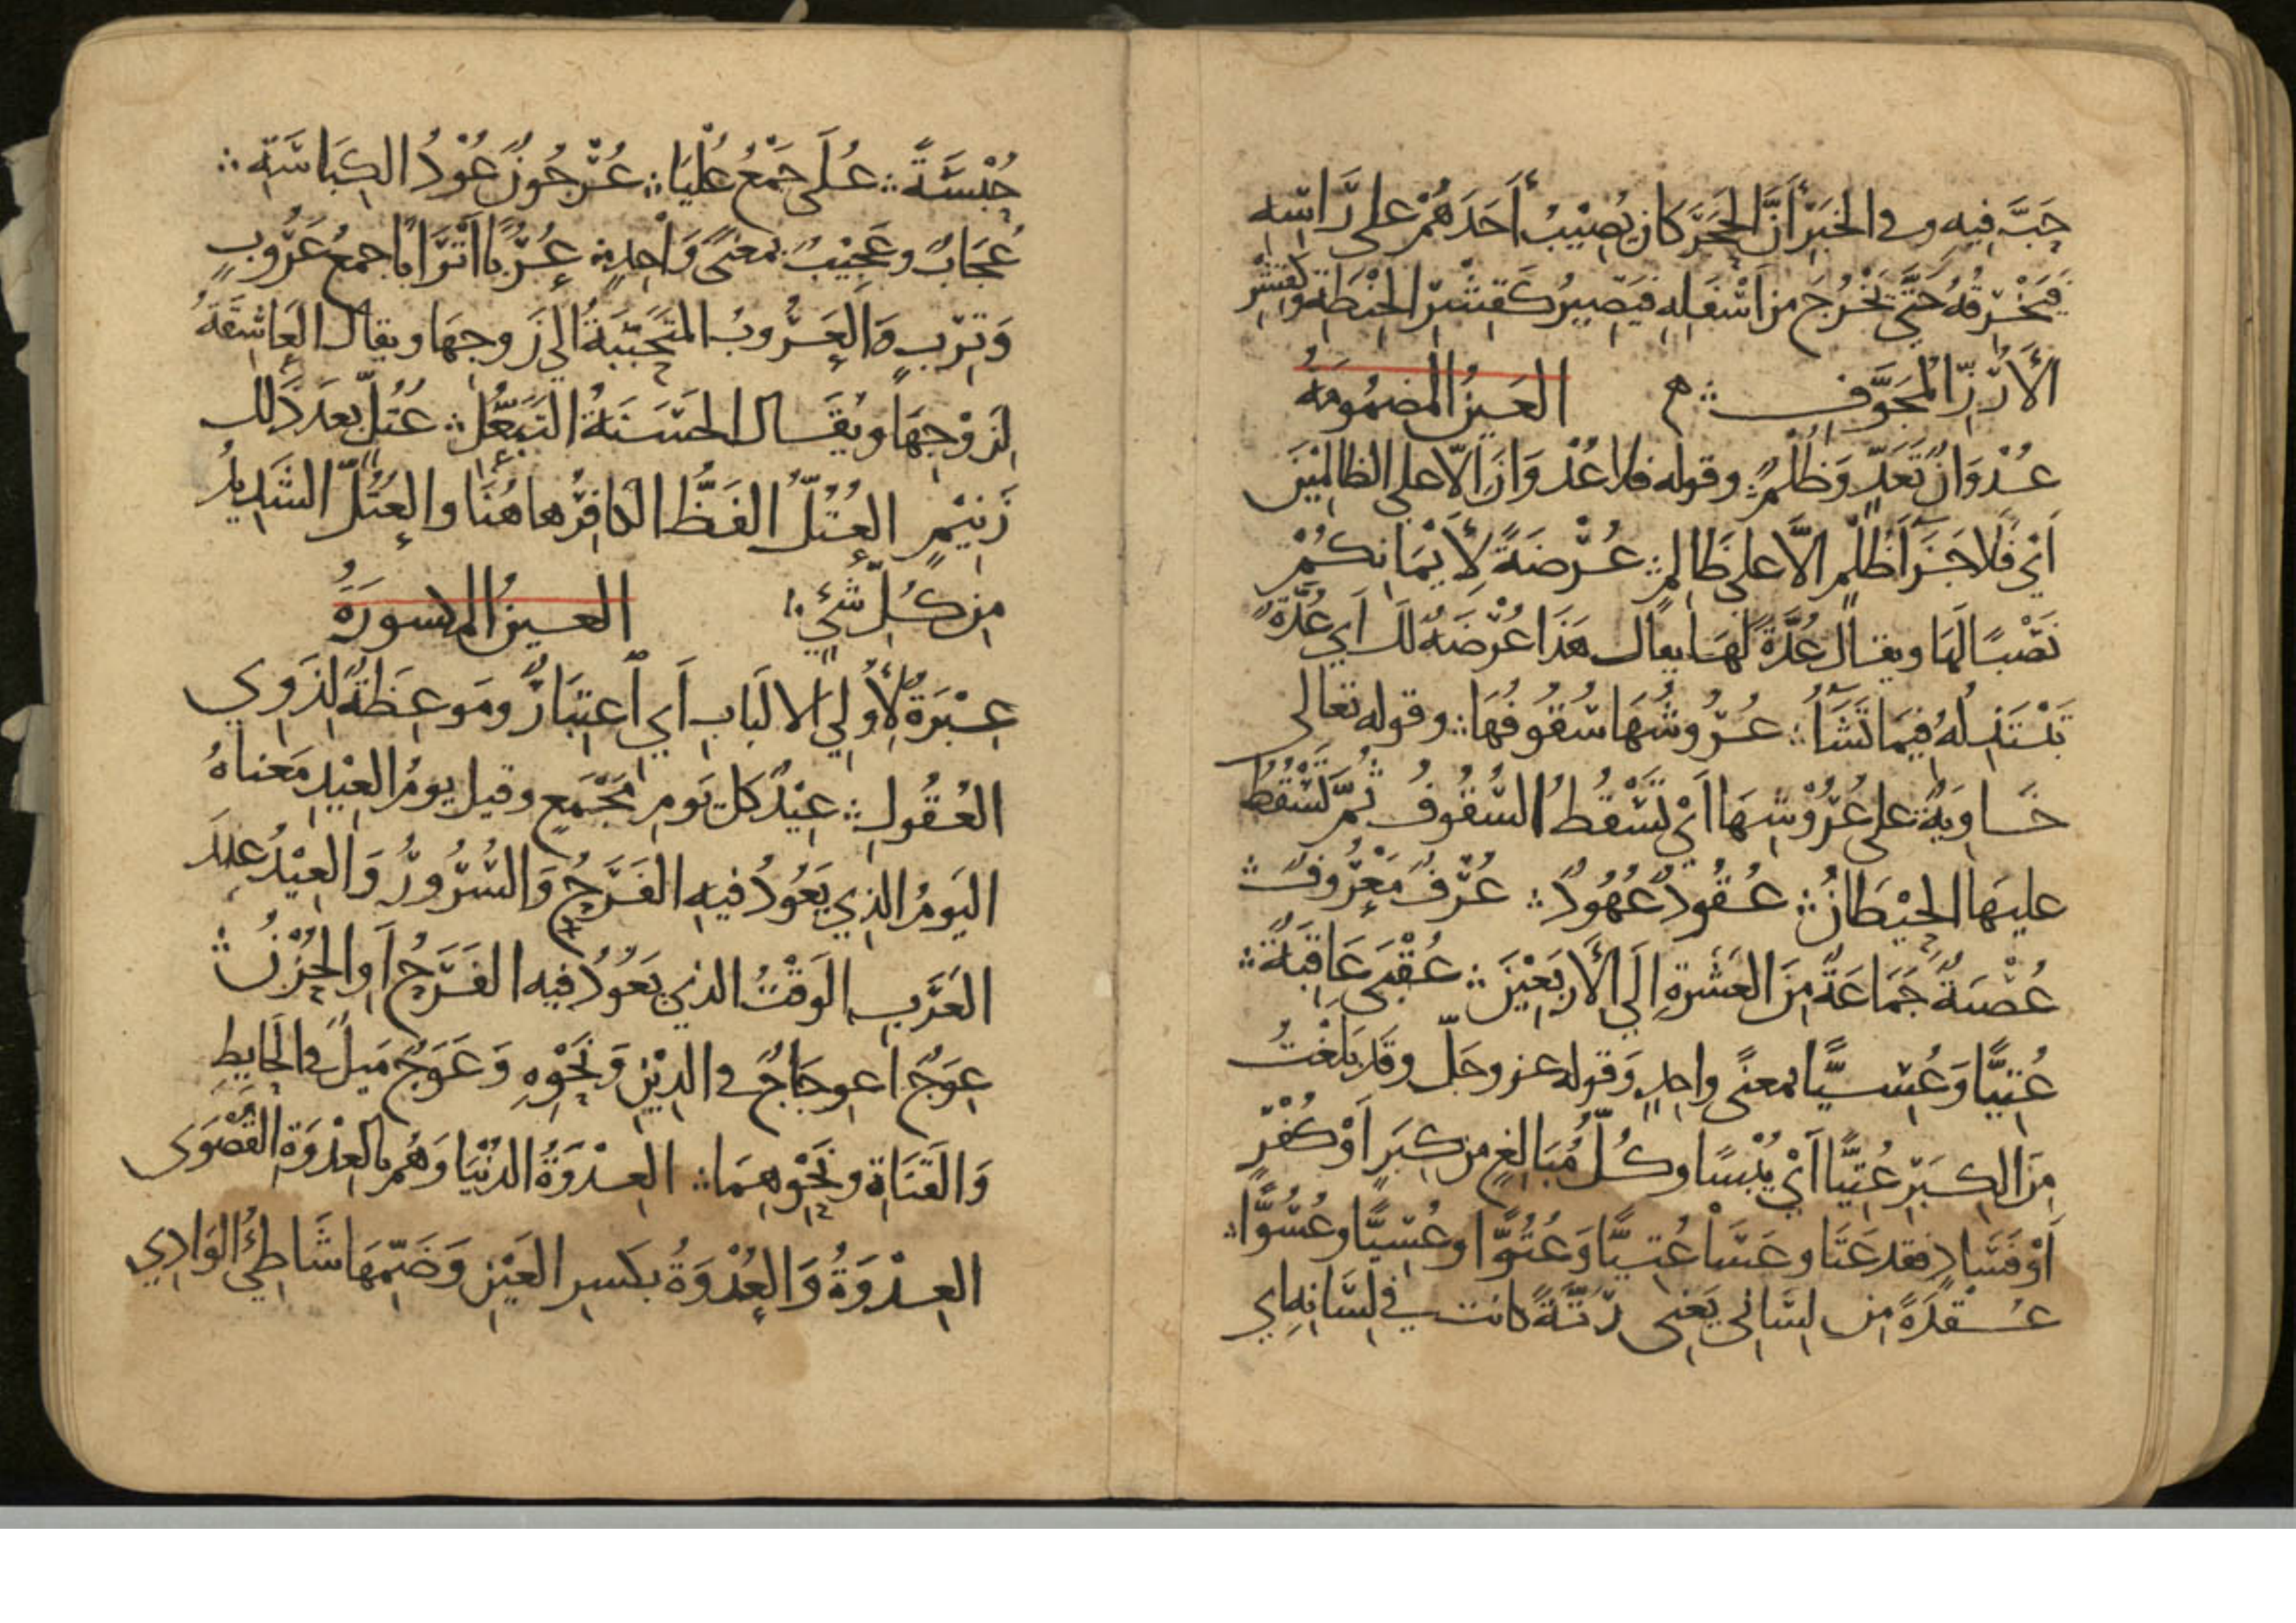 حَبَّ فِيهِ وفي الخَبَرِ أَنَّ الحَجَرَ كَانَ يُصِيْبُ أَحَدَهُمْ على رَأسِهِ
فَيَخْرِقُهُ حَتَّى يَخْرُجَ مِن أَسْفَلِهِ فَيَصِيرُ كَقِشْرِ الحِنْطَةِ وَكَقِشْرِ
الأَرُزِّ المُجَوَّفِ ؞ ه العَينُ المَضمُومَةُ
عُدْوَانٌ تَعَدٍّ وَظُلْمٌ ؞ وقوله فلا عُدْوَانَ الّا على الظالِمِيْنَ
أَيْ فَلَا جَزَآءَ ظُلْمٍ الَّا على ظَالِمٍ ؞ عُرْضَةً لِأَيْمَانِكُمْ
نَصْبًا لَهَا ويقال عُدَّةً لَهَا يقال هَذَا عُرْضَةٌ لَكَ أَي عُدَّةٌ
تَبْتَذِلُهُ فِيمَا تَشَآءُ ؞ عُرُوشُهَا سُقُوفُهَا ؞ وقوله تعالى
خَاوِيَةٌ على عُرُوْشِهَا أَيْ تَسْقُطُ السُّقُوفُ ثُمَّ تَسْقُطُ
عليهَا الحِيْطَانُ ؞ عُقُودٌ عُهُودٌ ؞ عُرْفٌ مَعْرُوفٌ ؞
عُصْبَةٌ جَمَاعَةٌ مِنَ العَشَرةِ إِلَى الأَرْبَعِيْنَ ؞ عُقْبَى عَاقِبَةٌ ؞
عُتِيًّا وَعُسِيًّا بمعنًى واحِدٍ وَقوله عز وجلّ وقد بَلَغْتُ
مِنَ الكِبَرِ عُتِيًّا أَيْ يُبْسًا وكُلُّ مُبَالِغٍ مِن كِبَرٍ أَوْ كُفْرٍ
أَوْ فَسَادٍ فقد عَتَا وعَسَا عُتِيًّا وَعُتُوًّا وعُسِيًّا وعُسُوًّا ؞
عُقْدَةً مِن لِسَانِى يَعْنِى رُتَّةً كانت في لِسَانِهِ أي
حُبْسَةً ؞ عُلَى جَمْعُ عُلْيَا ؞ عُرْجُونٌ عُوْدُ الكِبَاسَةِ ؞
عُجَابٌ وعَجِيْبٌ بمعنًى وَاحِدٍ ؞ عُرُبًا أَتْرَابًا جمعُ عَرُوبٍ
وَتِرْبٍ وَالعَرُوبُ المُتَحَبِّبَةُ إلى زَوجِهَا ويقال العَاشِقَةُ
لِزَوْجِهَا ويُقَال الحَسَنَةُ التَبَعُّلِ ؞ عُتُلٍّ بعدَ ذَلك
زَنِيْمٍ العُتُلُّ الفَظُّ الكافِرُ هاهُنَا والعُتُلُّ الشَدِيدُ
مِن كُلِّ شَيْءٍ العَينُ المكسورَةُ
عِبْرَةٌ لِأُولِي الالبَابِ أَي اعتِبَارٌ ومَوعِظَةٌ لِذَوِي
العُقُولِ ؞ عِيْدٌ كلّ يَومِ مَجْمَعٍ وقيل يومُ العِيْدِ مَعناهُ
اليَومُ الذِي يَعُودُ فيه الفَرَحُ وَالسُّرُورُ وَالعِيْدُ عِندَ
العَرَبِ الوَقْتُ الذي يَعُودُ فيه الفَرَحُ أَو الحُزْنُ ؞
عِوَجٌ اعوِجَاجٌ في الدِيْنِ وَنَحْوِهِ وَعَوَجٌ مَيلٌ في الحَايطِ
وَالقَنَاةِ ونَحْوِهِمَا ؞ العِدْوَةُ الدُنْيَا وَهُم بالعِدْوَةِ القُصْوَى
العِدْوَةُ وَالعُدْوَةُ بكَسرِ العَيْنِ وَضَمِّهَا شَاطِئُ الوَادِي